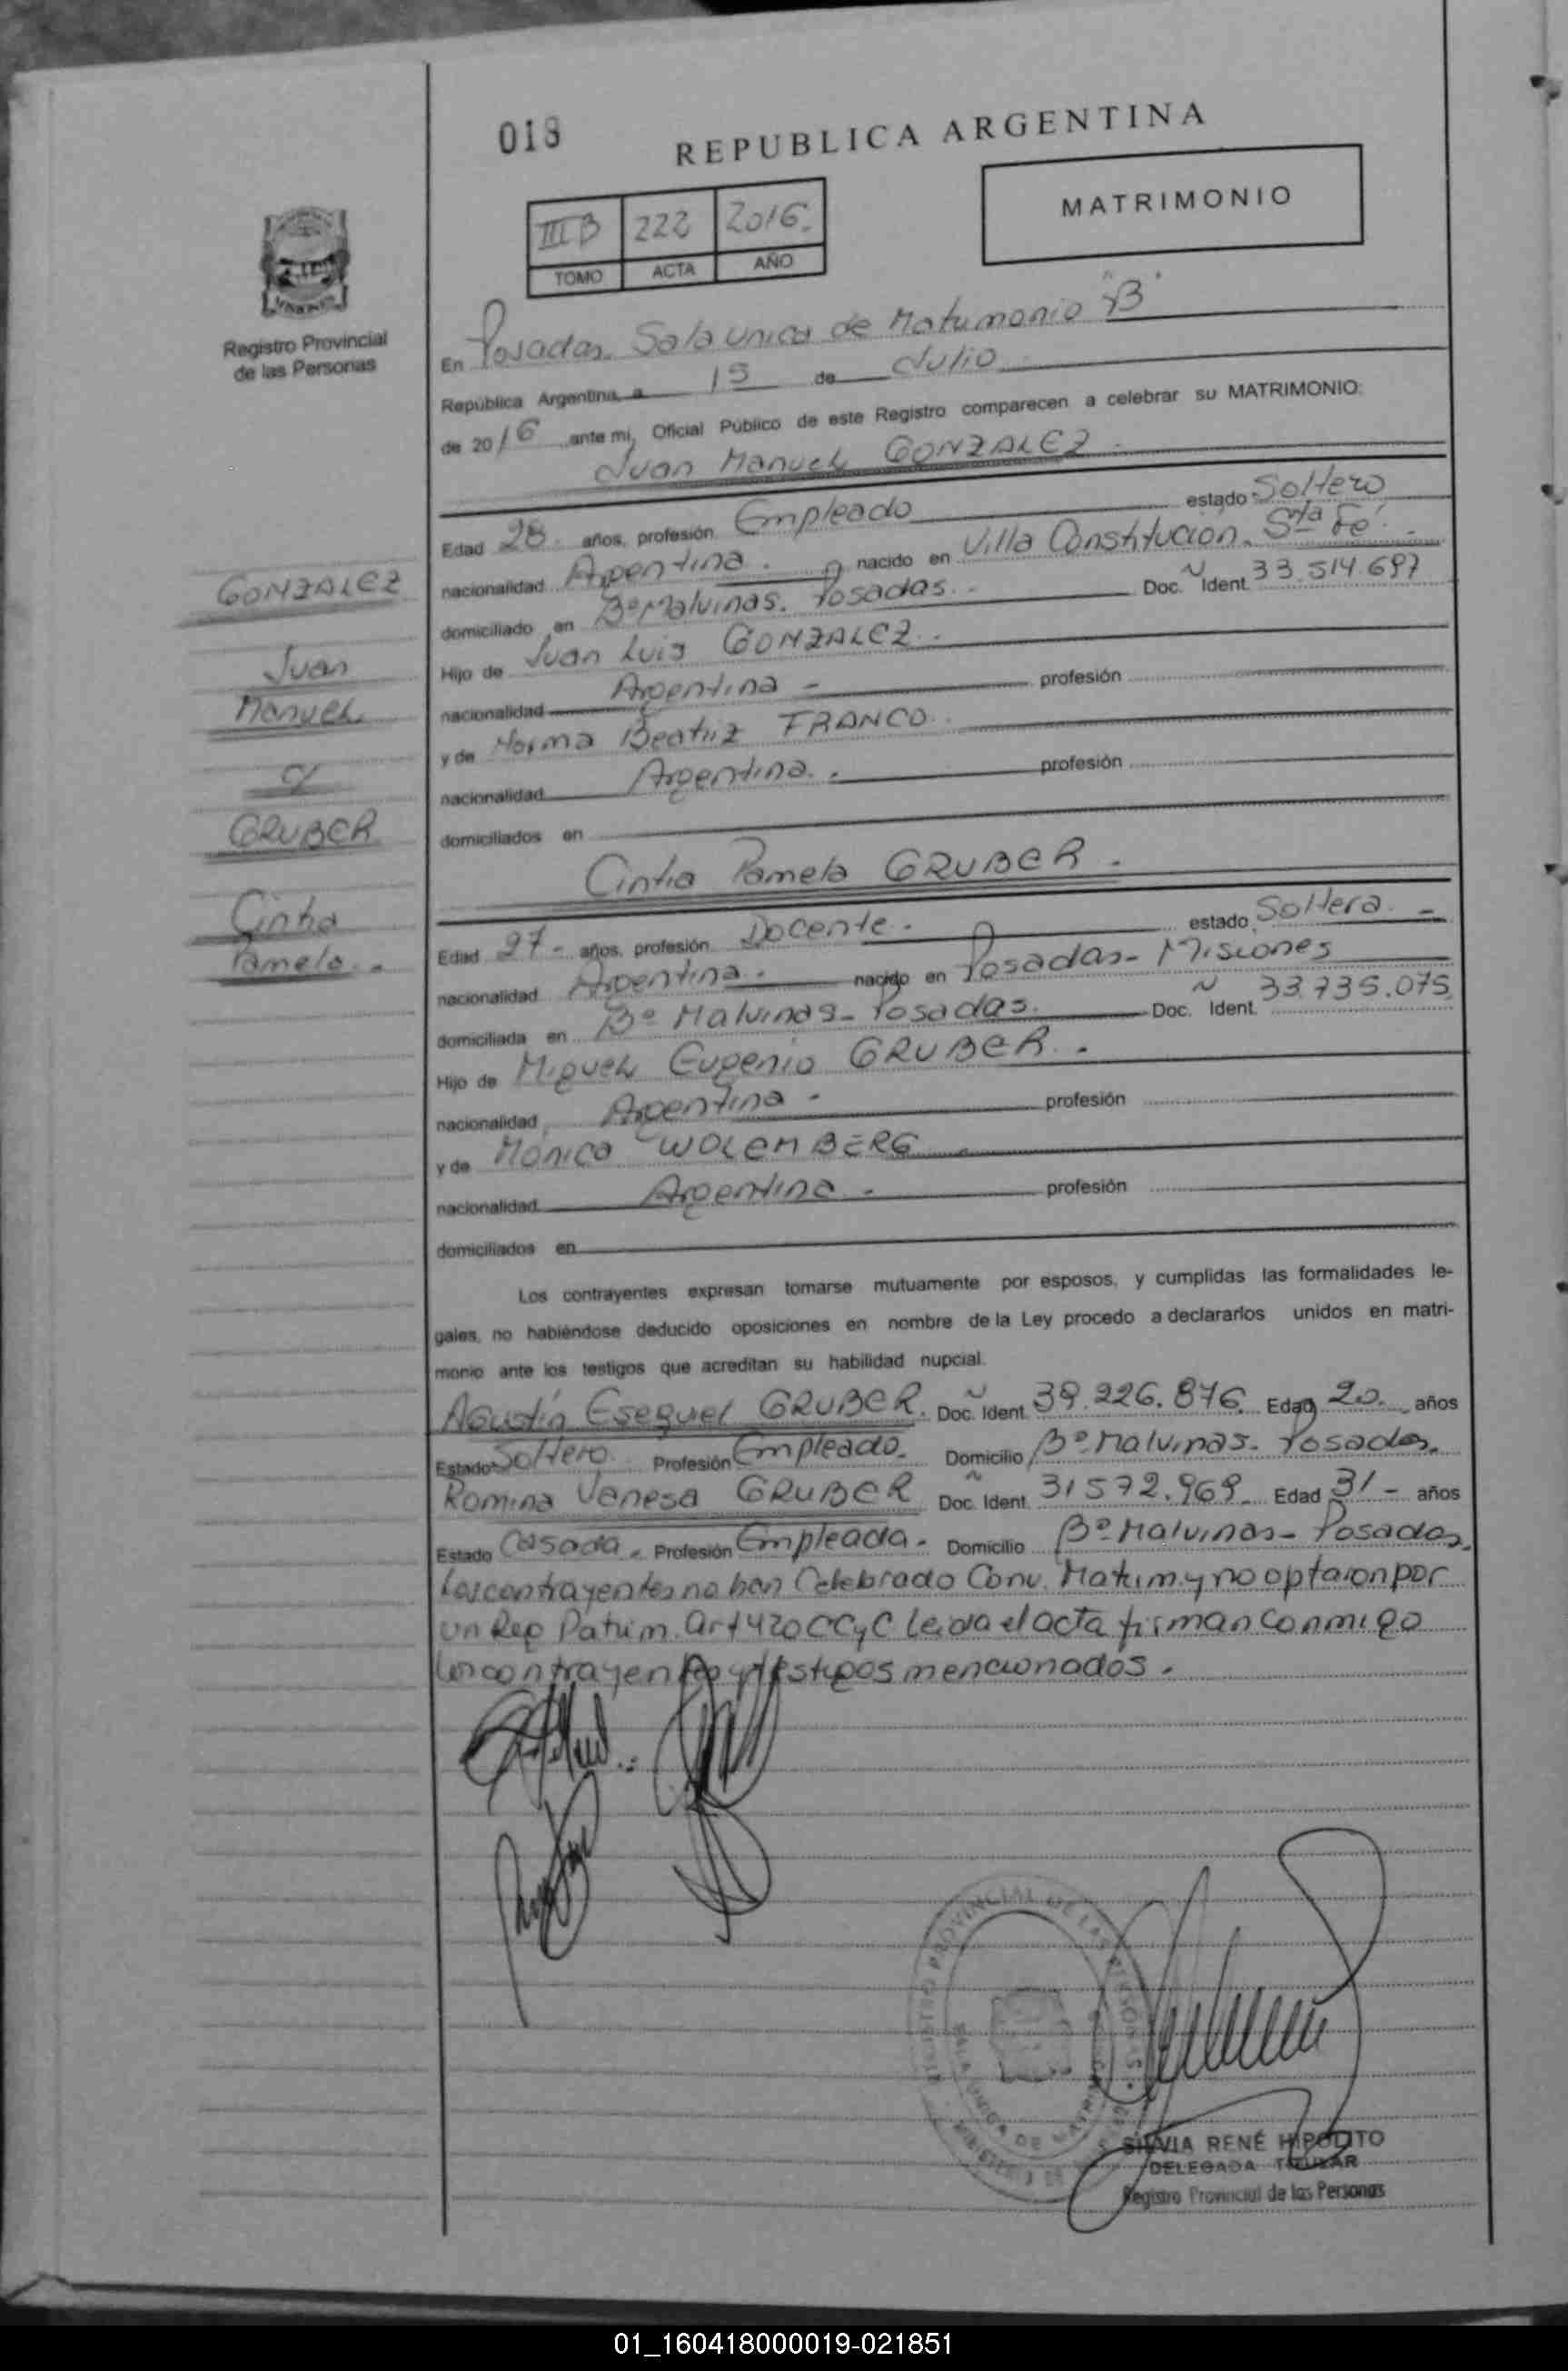 018
REPUBLICA ARGENTINA
MATRIMONIO
III B 222 2016.
TOMO ACTA AÑO
Registro Provincial
de las Personas
En Posadas. Sala unica de Matrimonio "B"
República Argentina, a 15 de Julio
de 2016 ante mi, Oficial Público de este Registro comparecen a celebrar su MATRIMONIO:
Juan Manuel GONZALEZ.
Edad 28. años, profesión Empleado estado Soltero
nacionalidad Argentina. nacido en Villa Constitucion. Sta Fe.
domiciliado en Bº Malvinas. Posadas. Doc. Ident. 33.514.697
Hijo de Juan Luis GONZALEZ.
nacionalidad Argentina - profesión
y de Norma Beatriz FRANCO.
nacionalidad Argentina. profesión
domiciliados en
Cintia Pamela GRUBER.
Edad 27- años, profesión Docente. estado Soltera. -
nacionalidad Argentina. nacido en Posadas- Misiones
domiciliada en Bº Malvinas- Posadas. Doc. Ident. 33.735.075
Hijo de Miguel Eugenio GRUBER.
nacionalidad Argentina - profesión
y de Mónica WOLEMBERG
nacionalidad Argentina - profesión
domiciliados en
Los contrayentes expresan tomarse mutuamente por esposos, y cumplidas las formalidades le-
gales, no habiéndose deducido oposiciones en nombre de la Ley procedo a declararlos unidos en matri-
monio ante los testigos que acreditan su habilidad nupcial.
Agustín Esequel GRUBER. Doc. Ident. 39.226.876. Edad 20. años
Estado Soltero. Profesión Empleado. Domicilio Bº Malvinas. Posadas.
Romina Vanesa GRUBER Doc. Ident. 31572.969. Edad 31- años
Estado Casada. Profesión Empleada. Domicilio Bº Malvinas- Posadas.
Los contrayentes no han Celebrado Conv. Matrim. y no optaron por
un Reg Patrim. art 420 CCyC leida el acta firman conmigo
los contrayentes y testigos mencionados.
GONZALEZ
Juan
Manuel
c/
GRUBER
Cintia
Pamela.
REGISTRO PROVINCIAL DE LAS PERSONAS
SALA UNICA DE
SILVIA RENÉ HIPÓLITO
DELEGADA TITULAR
Registro Provincial de las Personas
01_160418000019-021851